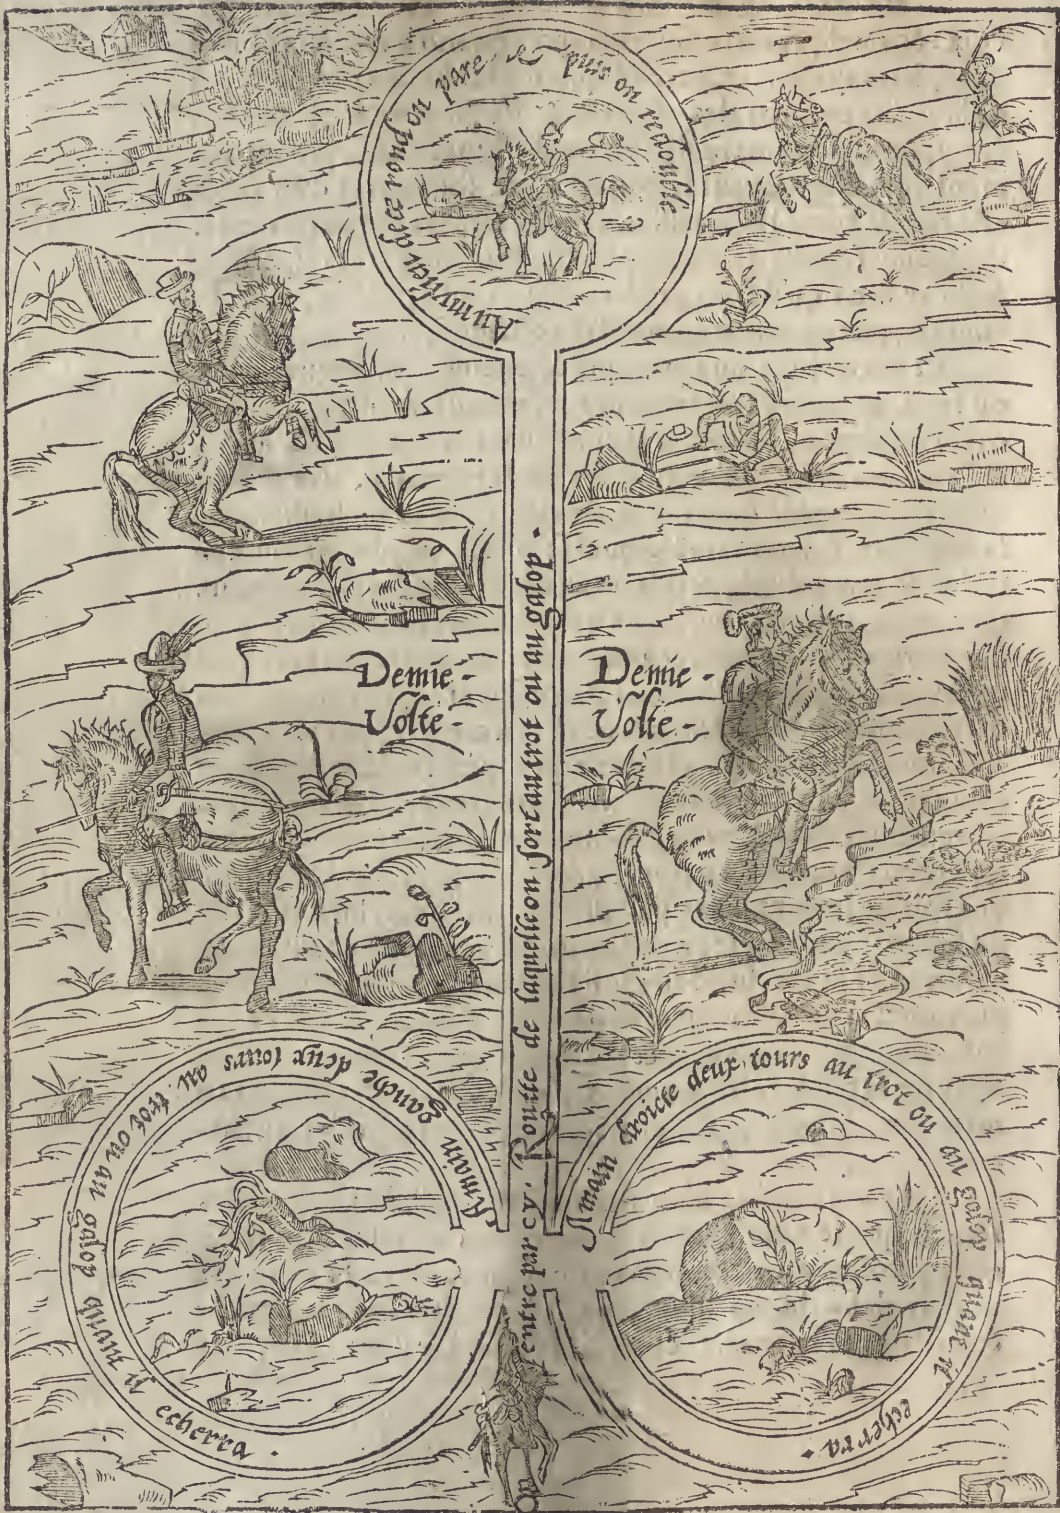 Au mylieu de ce rond on pare & puis on redouble
Demie -
Volte -
Demie -
Volte -
On entre par cy. Routte de laquelle on sort au trot ou au galop.
A main gauche deux tours au trot ou au galop quand il echerra.
A main droicte deux tours au trot ou au galop quant il echerra.